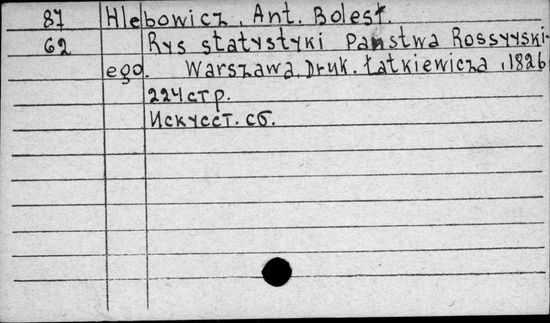 87 Hlebowicz, Ant. Bolest.
62 Rys statystyki Państwa Rossyyski-
ego. Warszawa, Druk. Łatkiewicza, 1826
224 стр.
Искусст. сб.